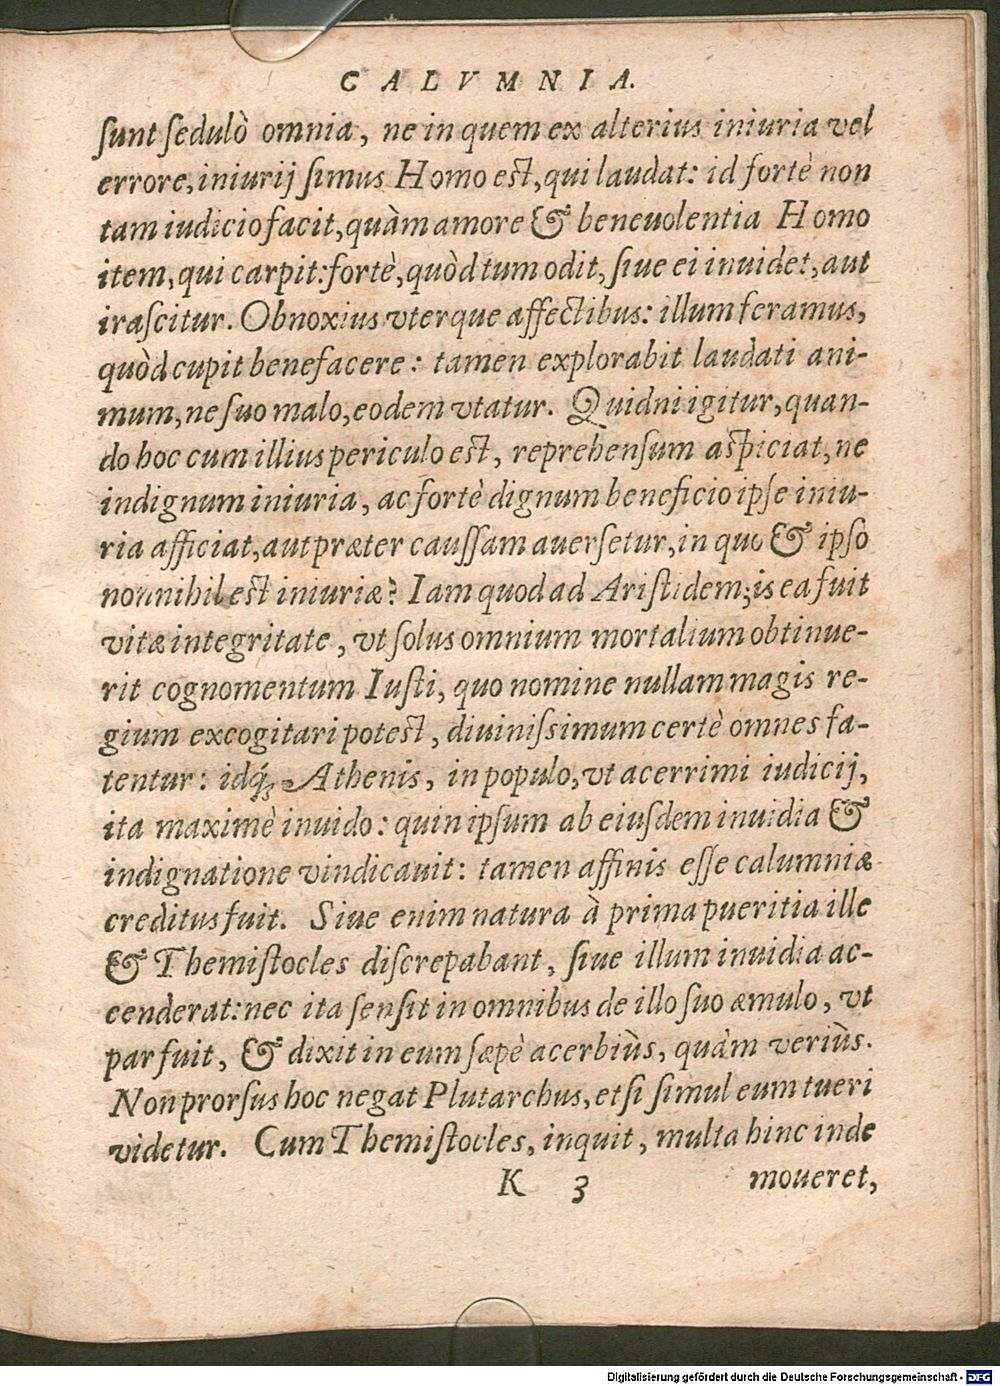 CALVMNIA.
sunt sedulò omnia, ne in quem ex alterius iniuria vel
errore, iniurij simus Homo est, qui laudat: id fortè non
tam iudicio facit, quàm amore & beneuolentia Homo
item, qui carpit: fortè, quòd tum odit, siue ei inuidet, aut
irascitur. Obnoxius vterque affectibus: illum feramus,
quòd cupit benefacere: tamen explorabit laudati ani-
mum, ne suo malo, eodem vtatur. Quidni igitur, quan-
do hoc cum illius periculo est, reprehensum aspiciat, ne
indignum iniuria, ac fortè dignum beneficio ipse iniu-
ria afficiat, aut præter caussam auersetur, in quo & ipso
nonnihil est iniuriæ? Iam quod ad Aristidem; is ea fuit
vitæ integritate, vt solus omnium mortalium obtinue-
rit cognomentum Iusti, quo nomine nullam magis re-
gium excogitari potest, diuinissimum certè omnes fa-
tentur: idq́; Athenis, in populo, vt acerrimi iudicij,
ita maximè inuido: quin ipsum ab eiusdem inuidia &
indignatione vindicauit: tamen affinis esse calumniæ
creditus fuit. Siue enim natura à prima pueritia ille
& Themistocles discrepabant, siue illum inuidia ac-
cenderat: nec ita sensit in omnibus de illo suo æmulo, vt
par fuit, & dixit in eum sæpè acerbiùs, quàm veriùs.
Non prorsus hoc negat Plutarchus, etsi simul eum tueri
videtur. Cum Themistocles, inquit, multa hinc inde
K 3 moueret,
Digitalisierung gefördert durch die Deutsche Forschungsgemeinschaft - DFG